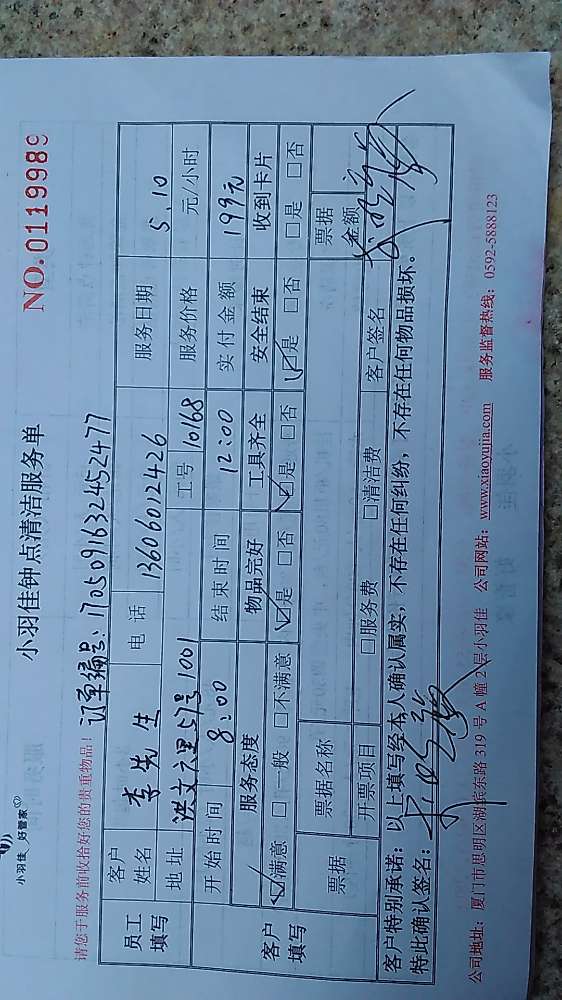 小羽佳 好管家
小羽佳钟点清洁服务单
NO.0119989
请您于服务前收拾好您的贵重物品!
订单编号:170509163245247​7
员工填写
客户姓名 李先生 电话 13606012426 服务日期 5.10
地址 洪文六里57号1001 工号 10168 服务价格 元/小时
开始时间 8:00 结束时间 12:00 实付金额 199元
客户填写
服务态度 物品完好 工具齐全 安全结束 收到卡片
☑满意 □一般 □不满意 ☑是 □否 ☑是 □否 ☑是 □否 □是 □否
票据 票据名称 票据金额
开票项目 □服务费 □清洁费 客户签名
客户特别承诺:以上填写经本人确认属实,不存在任何纠纷,不存在任何物品损坏。
特此确认签名:
公司地址:厦门市思明区湖滨东路 319 号 A 幢 2 层小羽佳 公司网站:www.xiaoyujia.com 服务监督热线:0592-5888123